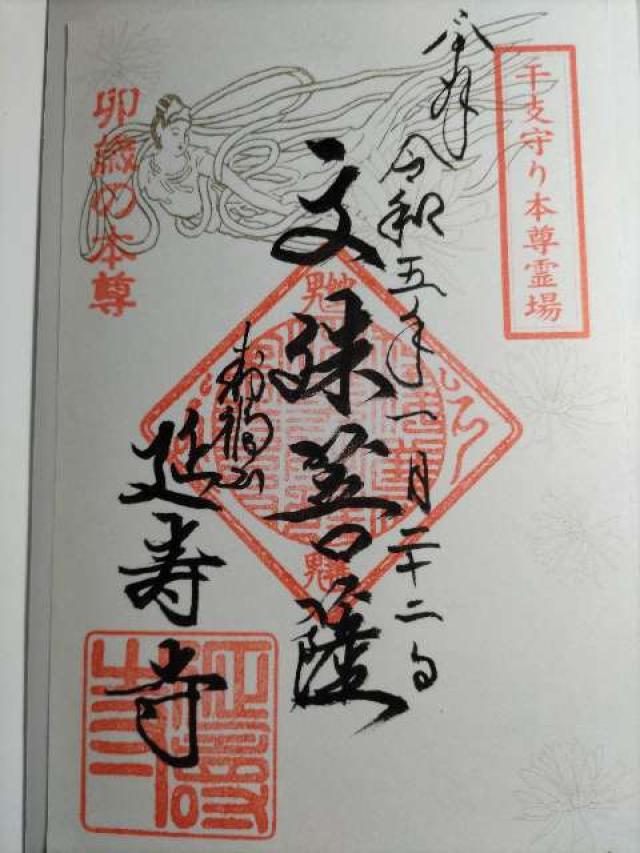 干支守り本尊霊場
奉拝 令和五年一月二十二日
文殊菩薩
寿福山
延寿寺
卯歳の本尊